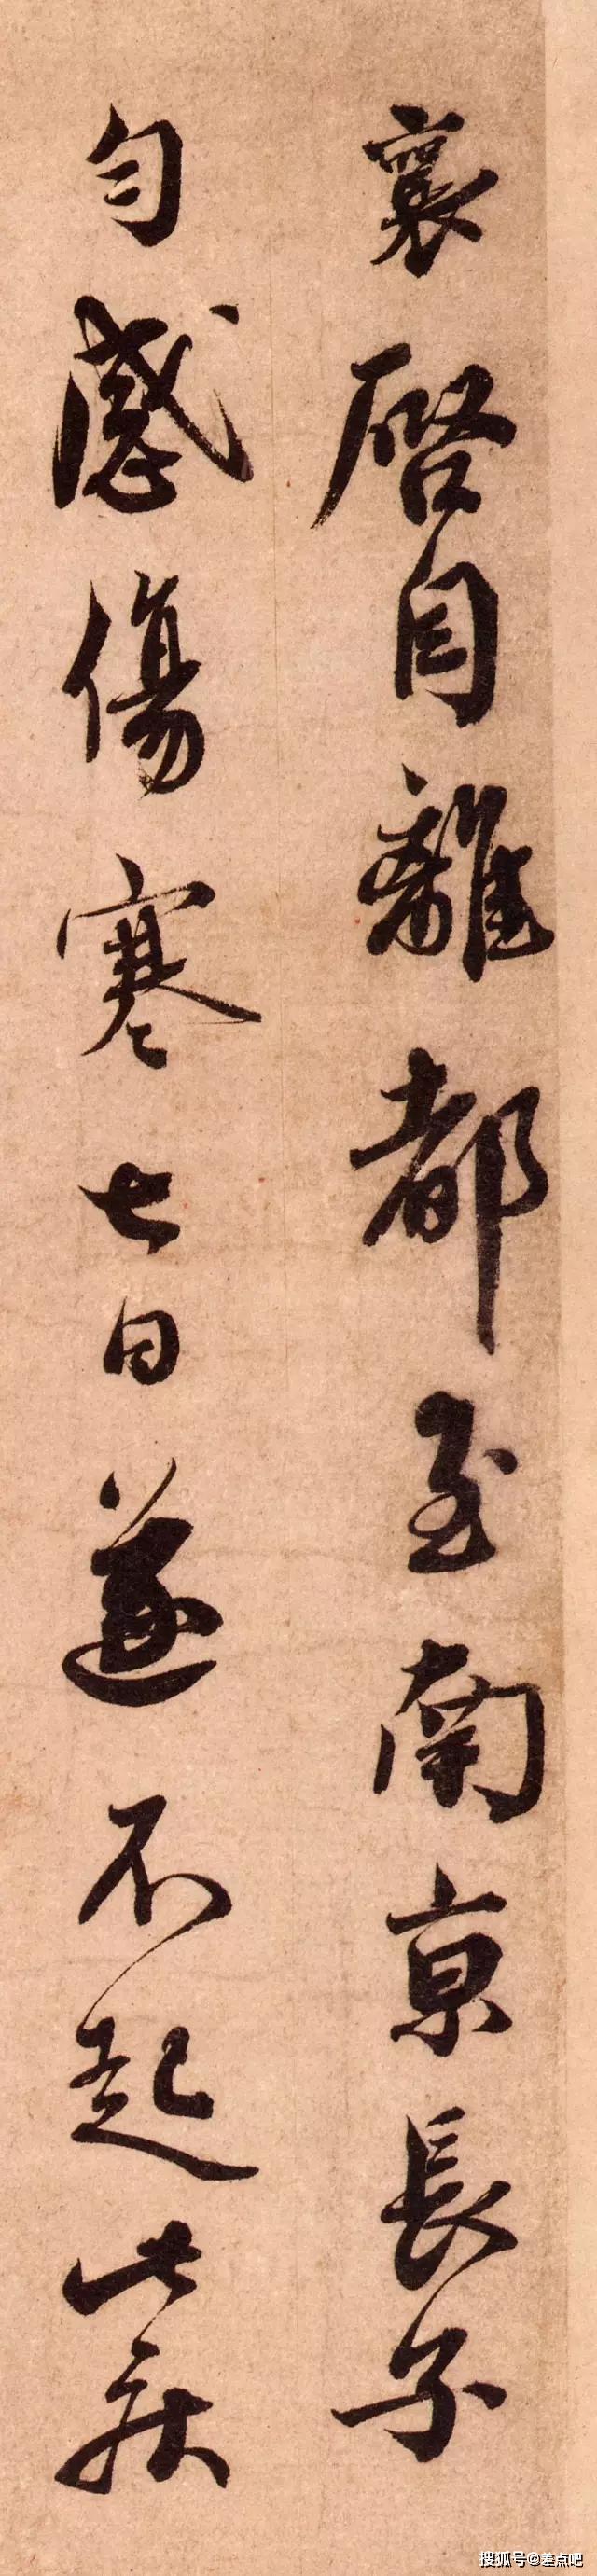 襄啓自離都至南京長子
勻感傷寒七日遂不起此疾
搜狐号@差点吧